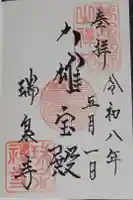 奉拝
令和八年
五月一日
大雄宝殿
瑞聖寺